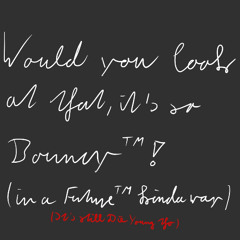 Would you look
at that, it's so
Bouncy™!
(in a Future™ kinda way)
(It's still D&